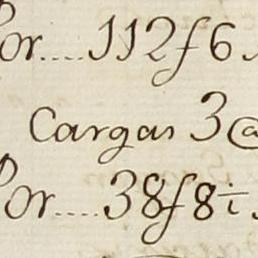 Por....112f6
Cargas 3@
Por....38f8i